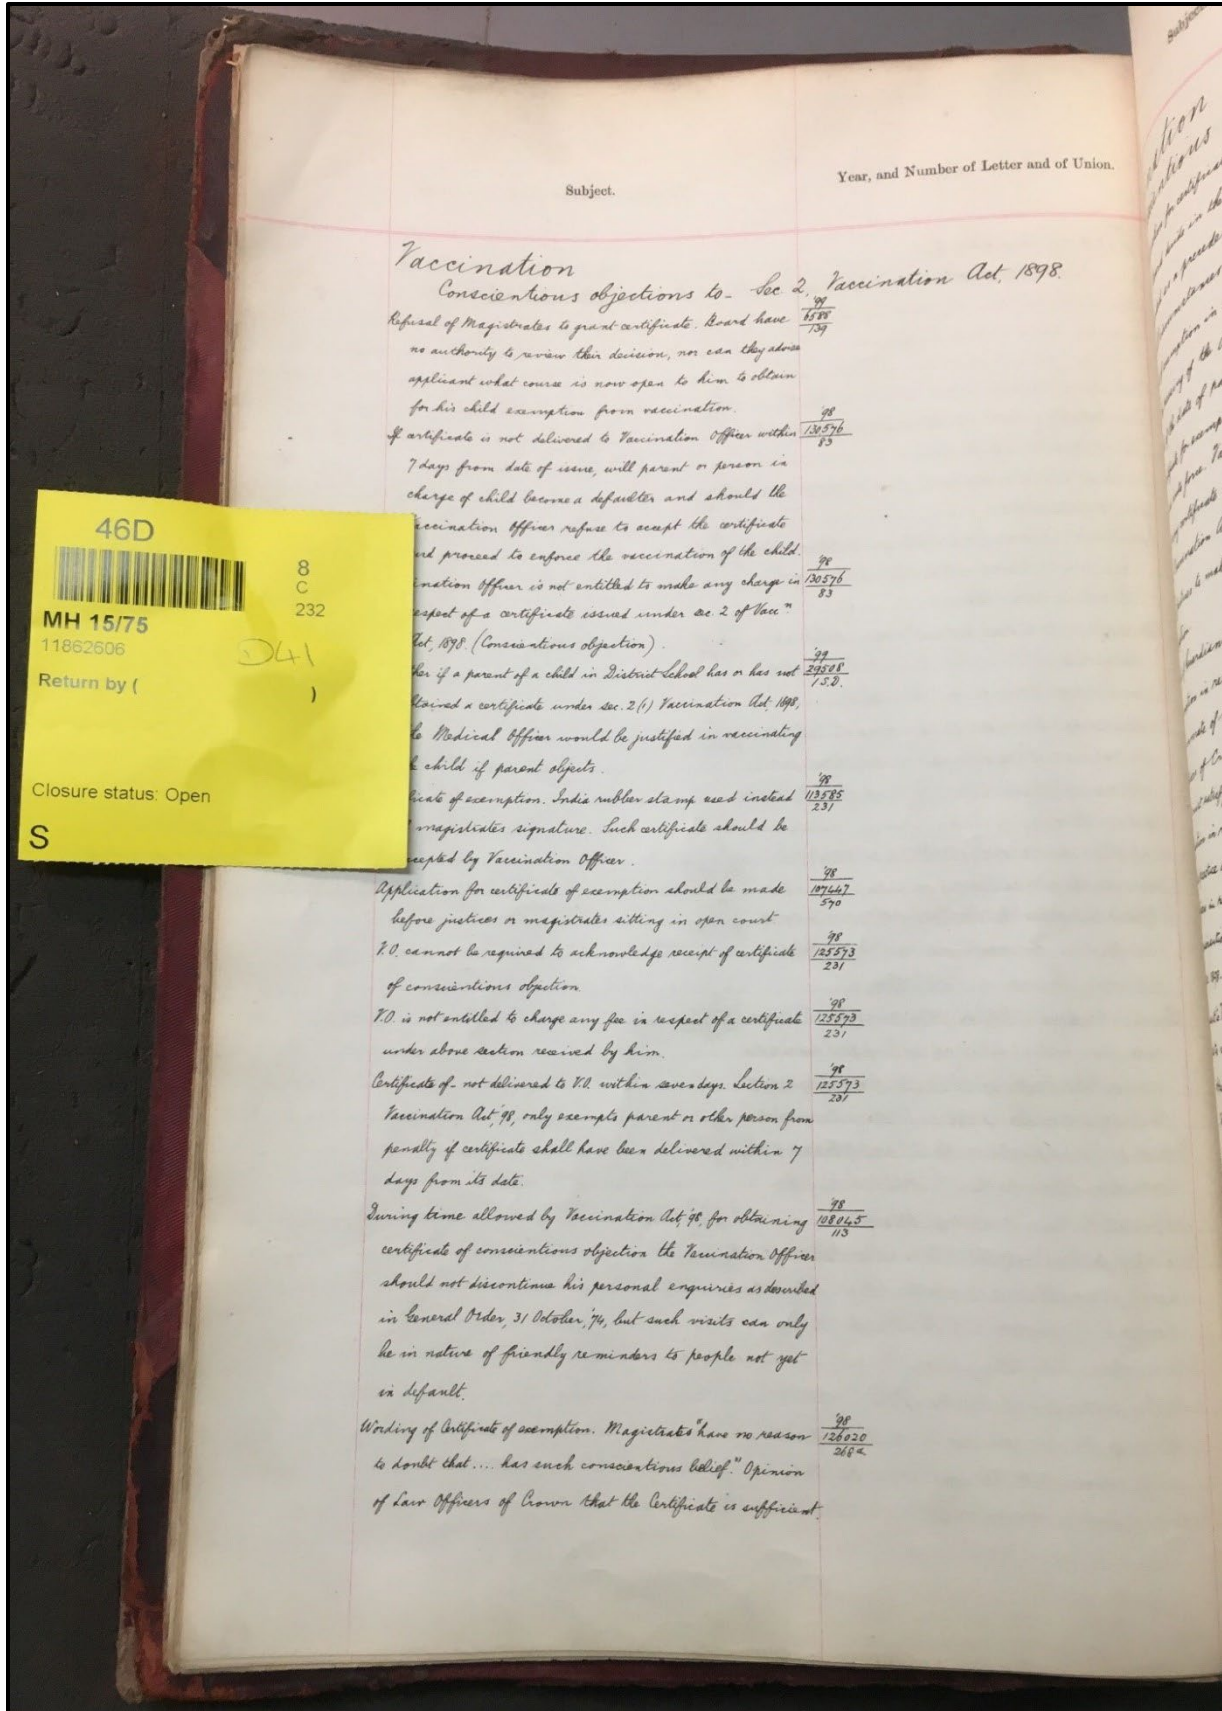 Subject.
Year, and Number of Letter and of Union.
Vaccination
Conscientious objections to - Sec 2, Vaccination Act, 1898.
Refusal of Magistrates to grant certificate. Board have
'99
6588
139
no authority to review their decision, nor can they advise
applicant what course is now open to him to obtain
for his child exemption from vaccination.
If certificate is not delivered to Vaccination Officer within
'98
130576
83
7 days from date of issue, will parent or person in
charge of child become a defaulter and should the
accination Officer refuse to accept the certificate
nd proceed to enforce the vaccination of the child.
ination Officer is not entitled to make any charge in
'98
130576
83
espect of a certificate issued under sec. 2 of Vacc"
Act, 1898. (Conscientious objection).
her if a parent of a child in District School has or has not
'99
29508
I S.D.
btained a certificate under sec. 2 (1) Vaccination Act, 1898,
e Medical Officer would be justified in vaccinating
child if parent objects.
ficate of exemption. India rubber stamp used instead
'98
113585
231
magistrates signature. Such certificate should be
ccepted by Vaccination Officer.
Application for certificate of exemption should be made
'98
107447
570
before justices or magistrates sitting in open court
V.O. cannot be required to acknowledge receipt of certificate
'98
125573
231
of conscientious objection.
V.O. is not entitled to charge any fee in respect of a certificate
'98
125573
231
under above section received by him.
Certificate of - not delivered to V.O. within seven days. Section 2
'98
125573
231
Vaccination Act, '98, only exempts parent or other person from
penalty if certificate shall have been delivered within 7
days from its date.
During time allowed by Vaccination Act, '98, for obtaining
'98
108045
113
certificate of conscientious objection the Vaccination Officer
should not discontinue his personal enquiries as described
in General Order, 31 October, '74, but such visits can only
be in nature of friendly reminders to people not yet
in default.
Wording of Certificate of exemption. Magistrates "have no reason
'98
126020
268a
to doubt that .... has such conscientious belief." Opinion
of Law Officers of Crown that the Certificate is sufficient.
46D
8
C
232
MH 15/75
11862606
D41
Return by ( )
Closure status: Open
S